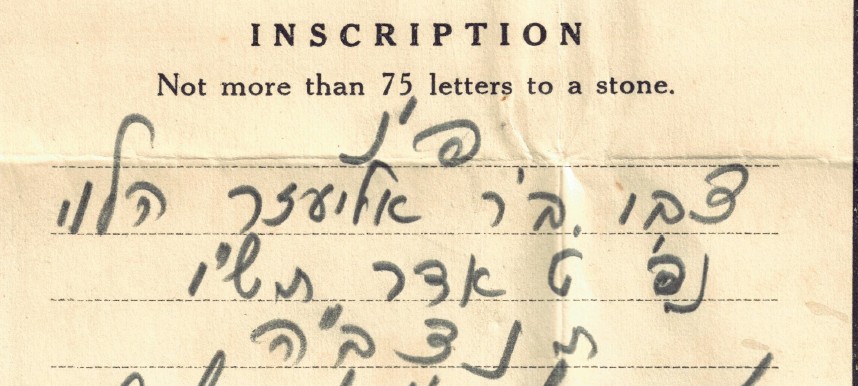 INSCRIPTION
Not more than 75 letters to a stone.
פ״נ
צבי ב״ר אליעזר הלוי
נפ׳ ט אדר תשי״ו
ת נ צ ב״ה